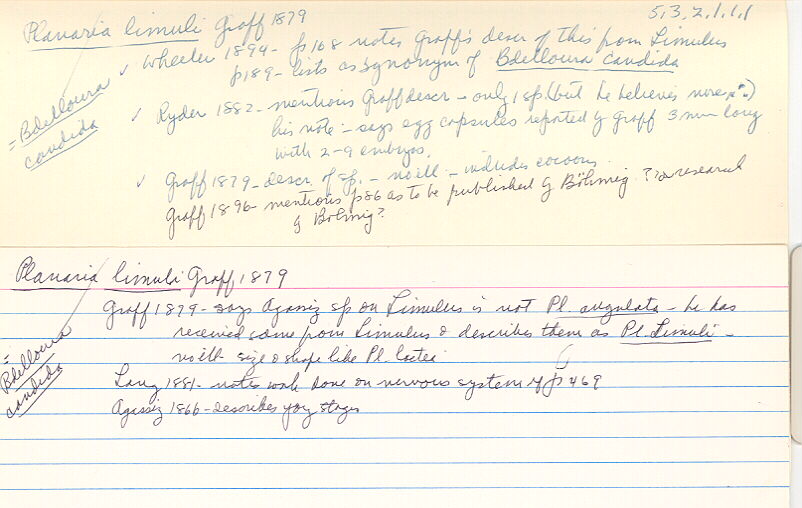 5, 3, 2, 1, 1, 1
Planaria limuli Graff 1879
✓ Wheeler 1894 - p168 notes Graff's descr of this from Limulus
p189 - lists as synonym of Bdelloura candida
= Bdelloura candida
✓ Ryder 1882 - mentions Graff descr - only 1 sp. (but he believes more)
his note - says egg capsules reported by Graff 3 mm long
with 2-9 embryos.
✓ Graff 1879 - descr. of sp. - no ill - includes cocoons
Graff 1896 - mentions p86 as to be published by Böhmig ? research
by Böhmig?
Planaria limuli Graff, 1879
Graff 1879 - says Agassiz sp on Limulus is not Pl. angulata - he has
received some from Limulus & describes them as Pl. Limuli -
no ill. size & shape like Pl. lactea
= Bdelloura candida
Lang 1881 - notes work done on nervous system of p 469
Agassiz 1866 - describes yng stages